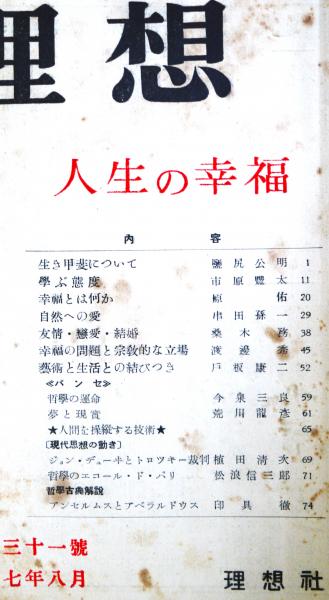 理想
人生の幸福
內容
生き甲斐について 鹽尻公明 1
學ぶ態度 市原豐太 11
幸福とは何か 原佑 20
自然への愛 串田孫一 29
友情・戀愛・結婚 桑木務 38
幸福の問題と宗敎的な立場 渡邊秀 45
藝術と生活との結びつき 戶板康二 52
≪パンセ≫
哲學の運命 今泉三良 59
夢と現實 荒川龍彥 61
★人間を操縱する技術★ 65
〔現代思想の動き〕
ジョン・デューヰとトロツキー裁判 植田清次 69
哲學のエコール・ド・パリ 松浪信三郞 71
哲學古典解說
アンセルムスとアベラルドウス 印具徹 74
三十一號
七年八月
理想社